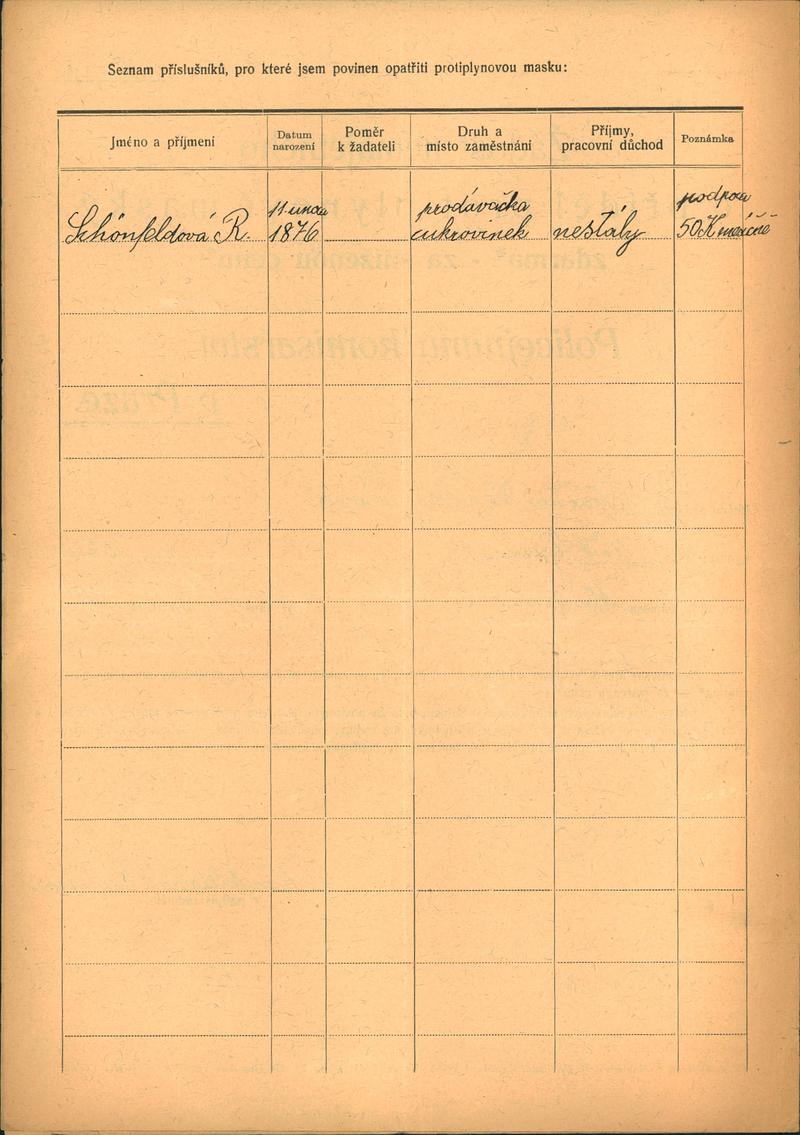 Seznam příslušníků, pro které jsem povinen opatřiti protiplynovou masku:
Jméno a příjmení
Datum
narození
Poměr
k žadateli
Druh a
místo zaměstnání
Příjmy,
pracovní důchod
Poznámka
Schönfeldová R.
11 února
1876
prodavačka
cukrovinek
nestálý
podpora
50 K měsíčně
zdarma* - za sníženou cenu*
Policejnímu komisařství
v Praze